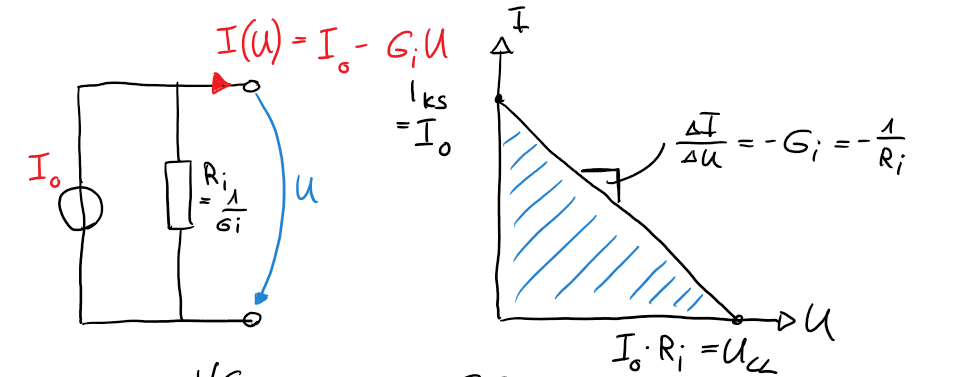 I(U) = I₀ - GᵢU
I₀
Rᵢ
= 1/Gᵢ
U
I
I_KS
= I₀
ΔI/ΔU = -Gᵢ = -1/Rᵢ
U
I₀ · Rᵢ = U_LL